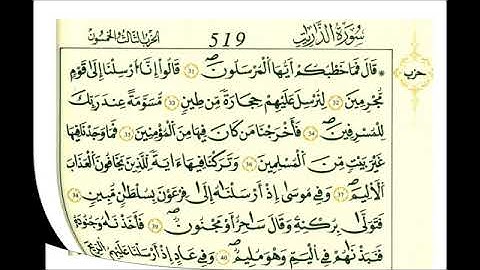 سُورَةُ الذَّارِيَاتِ 519 الحزب الثالث والخمسون
قَالَ فَمَا خَطْبُكُمْ أَيُّهَا الْمُرْسَلُونَ 31 قَالُوا إِنَّا أُرْسِلْنَا إِلَى قَوْمٍ
حزب
مُّجْرِمِينَ 32 لِنُرْسِلَ عَلَيْهِمْ حِجَارَةً مِّن طِينٍ 33 مُّسَوَّمَةً عِندَ رَبِّكَ
لِلْمُسْرِفِينَ 34 فَأَخْرَجْنَا مَن كَانَ فِيهَا مِنَ الْمُؤْمِنِينَ 35 فَمَا وَجَدْنَا فِيهَا
غَيْرَ بَيْتٍ مِّنَ الْمُسْلِمِينَ 36 وَتَرَكْنَا فِيهَا ءَايَةً لِّلَّذِينَ يَخَافُونَ الْعَذَابَ
الْأَلِيمَ 37 وَفِي مُوسَى إِذْ أَرْسَلْنَاهُ إِلَى فِرْعَوْنَ بِسُلْطَانٍ مُّبِينٍ 38
فَتَوَلَّى بِرُكْنِهِ وَقَالَ سَاحِرٌ أَوْ مَجْنُونٌ 39 فَأَخَذْنَاهُ وَجُنُودَهُ
فَنَبَذْنَاهُمْ فِي الْيَمِّ وَهُوَ مُلِيمٌ 40 وَفِي عَادٍ إِذْ أَرْسَلْنَا عَلَيْهِمُ الرِّيحَ